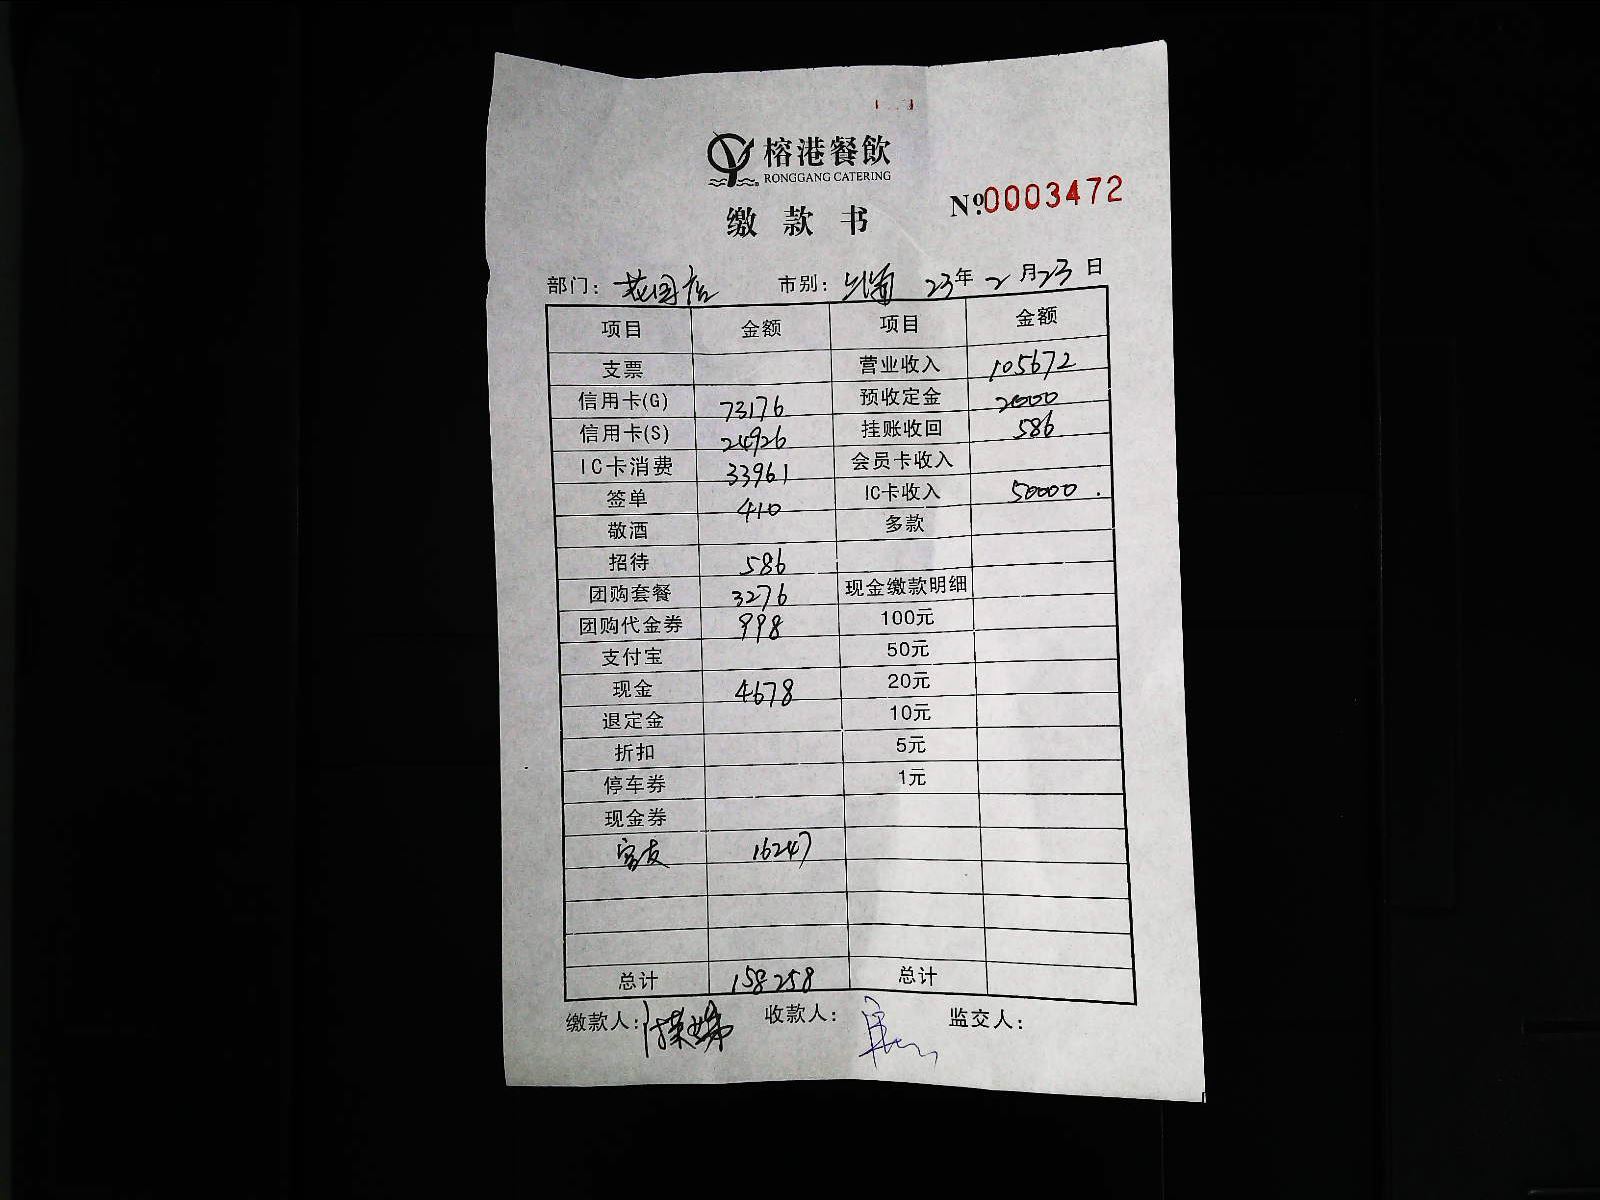 榕港餐飲
RONGGANG CATERING
缴款书
№0003472
部门：花园店 市别： 23年2月23日
项目 金额 项目 金额
支票 营业收入 105672
信用卡(G) 73176 预收定金 2000
信用卡(S) 24926 挂账收回 586
IC卡消费 33961 会员卡收入
签单 410 IC卡收入 50000.
敬酒 多款
招待 586
团购套餐 3276 现金缴款明细
团购代金券 998 100元
支付宝 50元
现金 4678 20元
退定金 10元
折扣 5元
停车券 1元
现金券
16247
总计 158258 总计
缴款人： 收款人： 监交人：